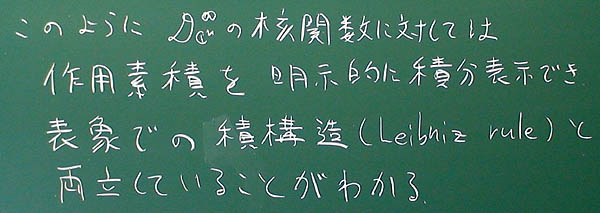 このように 𝒟^∞_{ℂⁿ} の核関数に対しては
作用素積を 明示的に積分表示でき
表象での 積構造(Leibniz rule)と
両立していることがわかる.